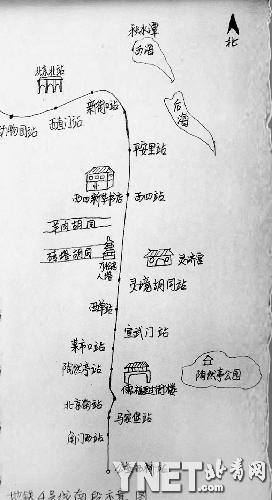 秋水潭
西海
北
北京北站
新街口站
后海
西直门站
动物园站
平安里站
西四新华书店
西四站
羊肉胡同
砖塔胡同
万松老人塔
灵济宫
灵境胡同站
西单站
宣武门站
菜市口站
陶然亭站
陶然亭公园
北京南站
马家堡站
角门西站
地铁4号线南段示意图
YNET.com
北青网